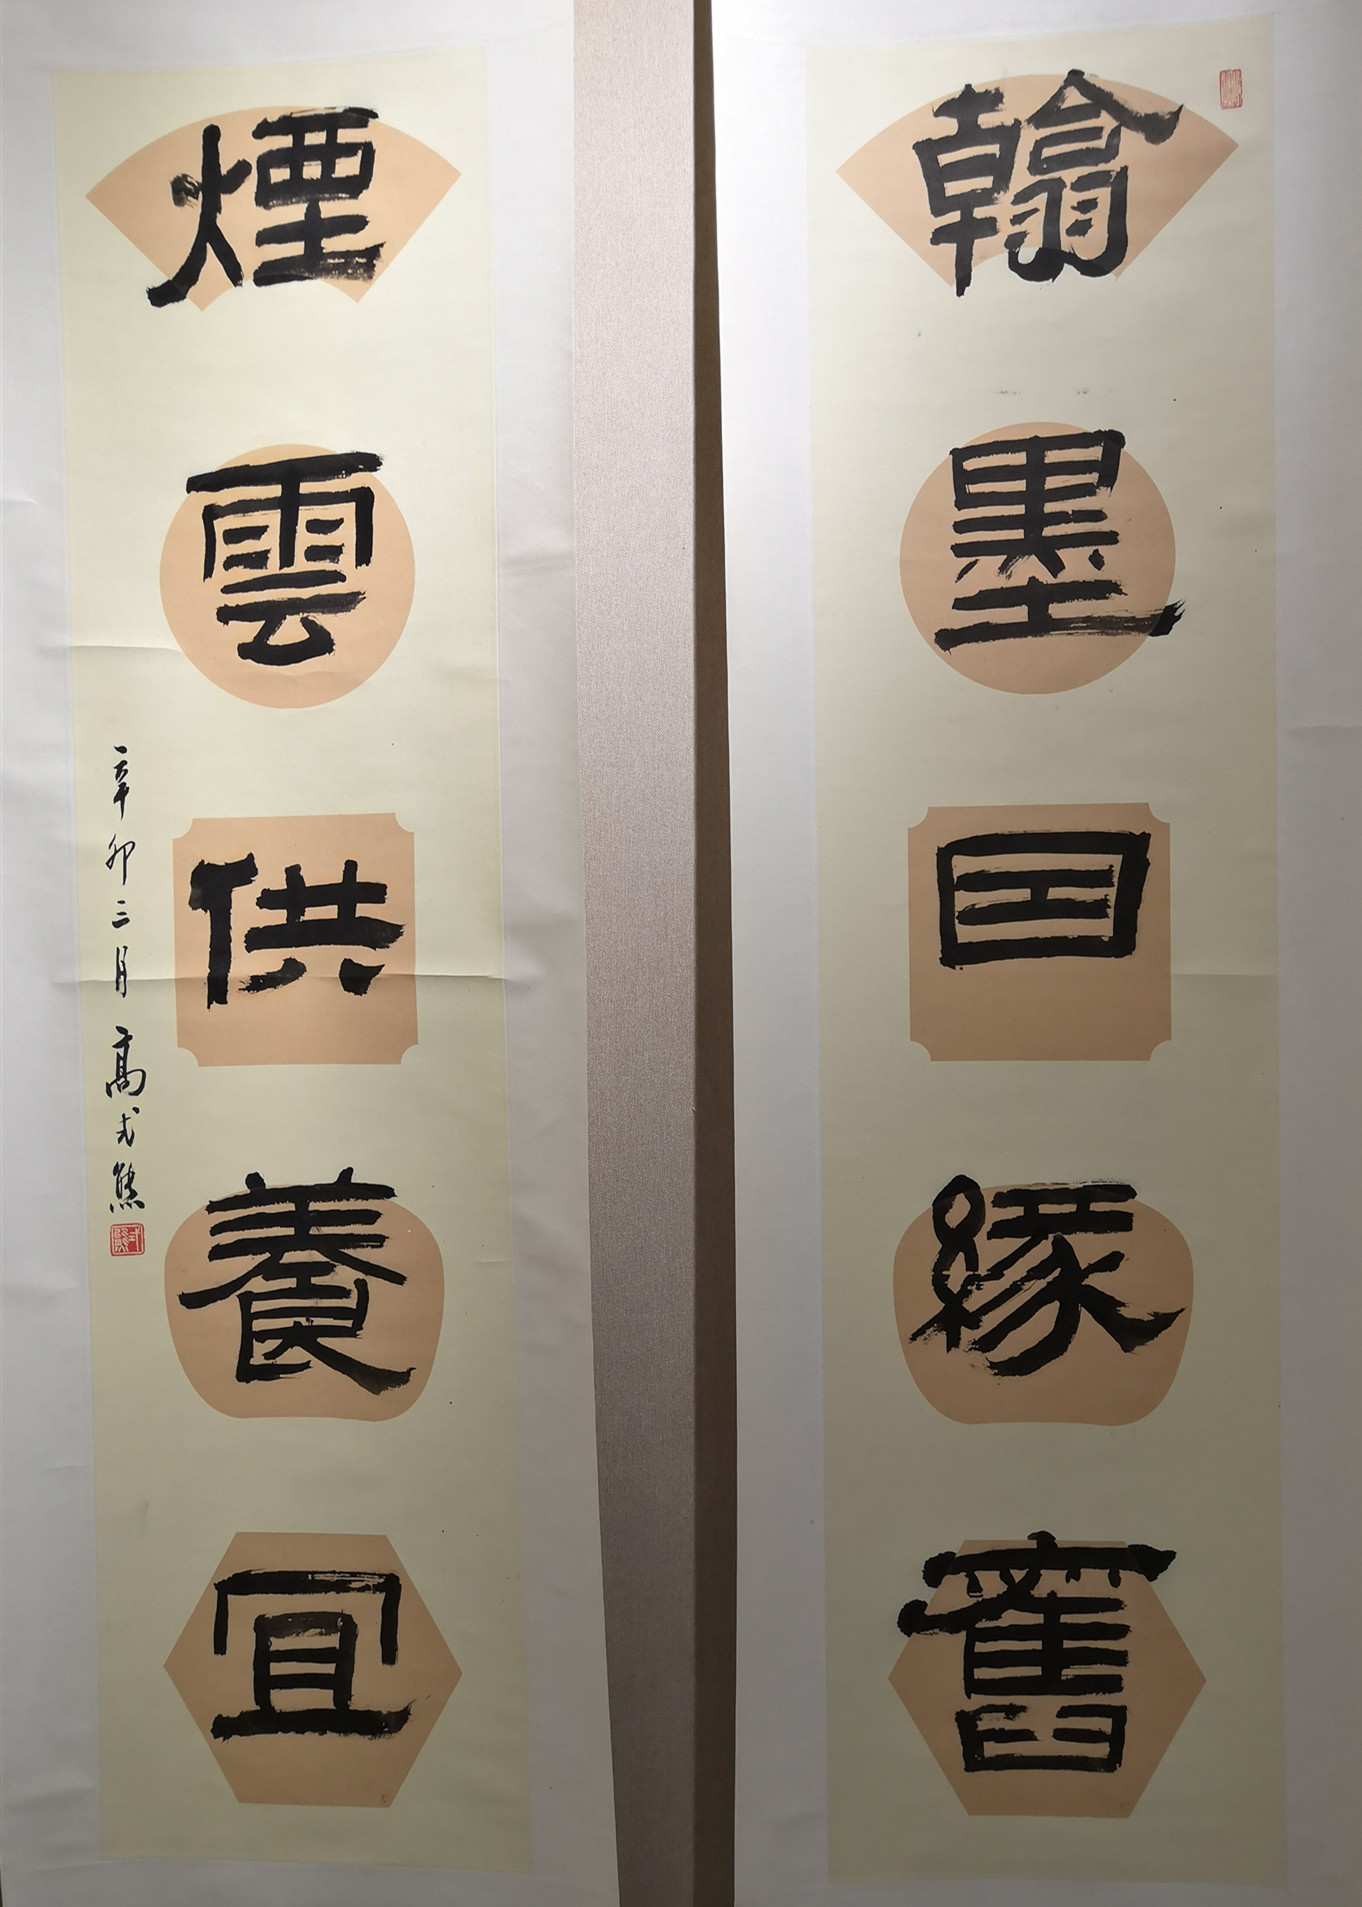 翰墨囙緣舊
煙雲供養宜
辛卯三月高式熊
式熊